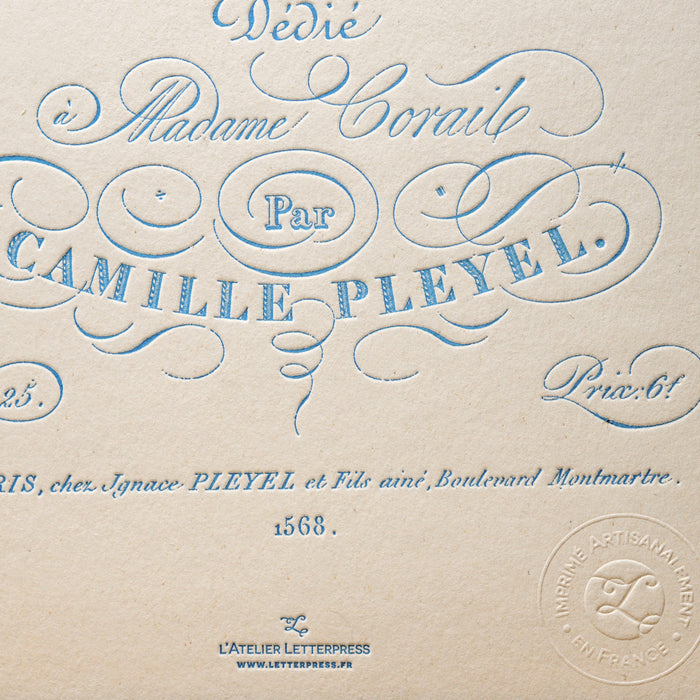 Dédié
à Madame Corail
Par
CAMILLE PLEYEL.
25.
Prix: 6f
RIS, chez Ignace PLEYEL et Fils ainé, Boulevard Montmartre.
1568.
L'ATELIER LETTERPRESS
WWW.LETTERPRESS.FR
IMPRIMÉ ARTISANALEMENT
• EN FRANCE •